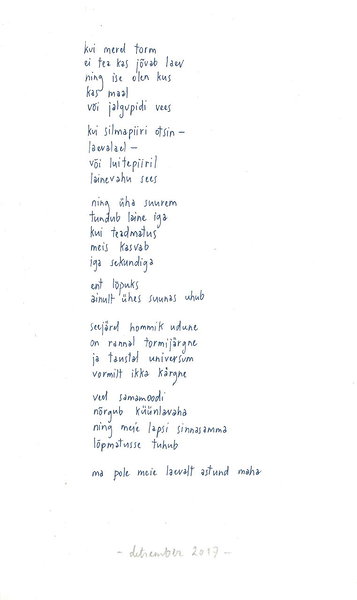 kui merel torm
ei tea kas jõvab laev
ning ise olen kus
kas maal
või jalgupidi vees
kui silmapiiri otsin –
laevalael –
või luitepiiril
lainevahu sees
ning üha suurem
tundub laine iga
kui teadmatus
meis kasvab
iga sekundiga
ent lõpuks
ainult ühes suunas uhub
seejärel hommik udune
on rannal tormijärgne
ja taustal universum
vormilt ikka kärgne
veel samamoodi
nõrgub küünlavaha
ning meie lapsi sinnasamma
lõpmatusse tuhub
ma pole meie laevalt astund maha
- detsember 2017 -